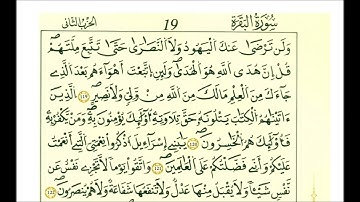 سُورَةُ الْبَقَرَةِ 19 الحزب الثاني
وَلَن تَرْضَىٰ عَنكَ الْيَهُودُ وَلَا النَّصَارَىٰ حَتَّىٰ تَتَّبِعَ مِلَّتَهُمْ
قُلْ إِنَّ هُدَى اللَّهِ هُوَ الْهُدَىٰ وَلَئِنِ اتَّبَعْتَ أَهْوَاءَهُم بَعْدَ الَّذِي
جَاءَكَ مِنَ الْعِلْمِ مَا لَكَ مِنَ اللَّهِ مِنْ وَلِيٍّ وَلَا نَصِيرٍ ١١٩ الَّذِينَ
ءَاتَيْنَاهُمُ الْكِتَابَ يَتْلُونَهُ حَقَّ تِلَاوَتِهِ أُوْلَٰئِكَ يُومِنُونَ بِهِ وَمَنْ يَّكْفُرْ بِهِ
فَأُوْلَٰئِكَ هُمُ الْخَاسِرُونَ ١٢٠ يَٰبَنِي إِسْرَاءِيلَ اذْكُرُوا نِعْمَتِيَ الَّتِي أَنْعَمْتُ
عَلَيْكُمْ وَأَنِّي فَضَّلْتُكُمْ عَلَى الْعَالَمِينَ ١٢١ وَاتَّقُوا يَوْمًا لَّا تَجْزِي نَفْسٌ عَن
نَّفْسٍ شَيْئًا وَلَا يُقْبَلُ مِنْهَا عَدْلٌ وَلَا تَنفَعُهَا شَفَاعَةٌ وَلَا هُمْ يُنصَرُونَ ١٢٢